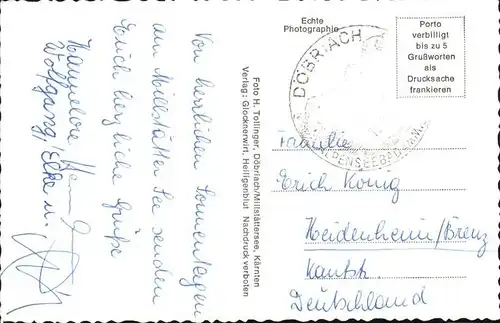 Von herrlichen Sonnentagen
am Millstätter See senden
Euch herzliche Grüße
Hannelore
Wolfgang, Elke u.
Foto H. Tollinger, Döbriach/Millstättersee, Kärnten
Verlag: Glocknerwirt, Heiligenblut Nachdruck verboten
Echte
Photographie
DÖBRIACH
Porto
verbilligt
bis zu 5
Grußworten
als
Drucksache
frankieren
Familie
Erich König
Heidenheim/Brenz
Kantstr.
Deutschland